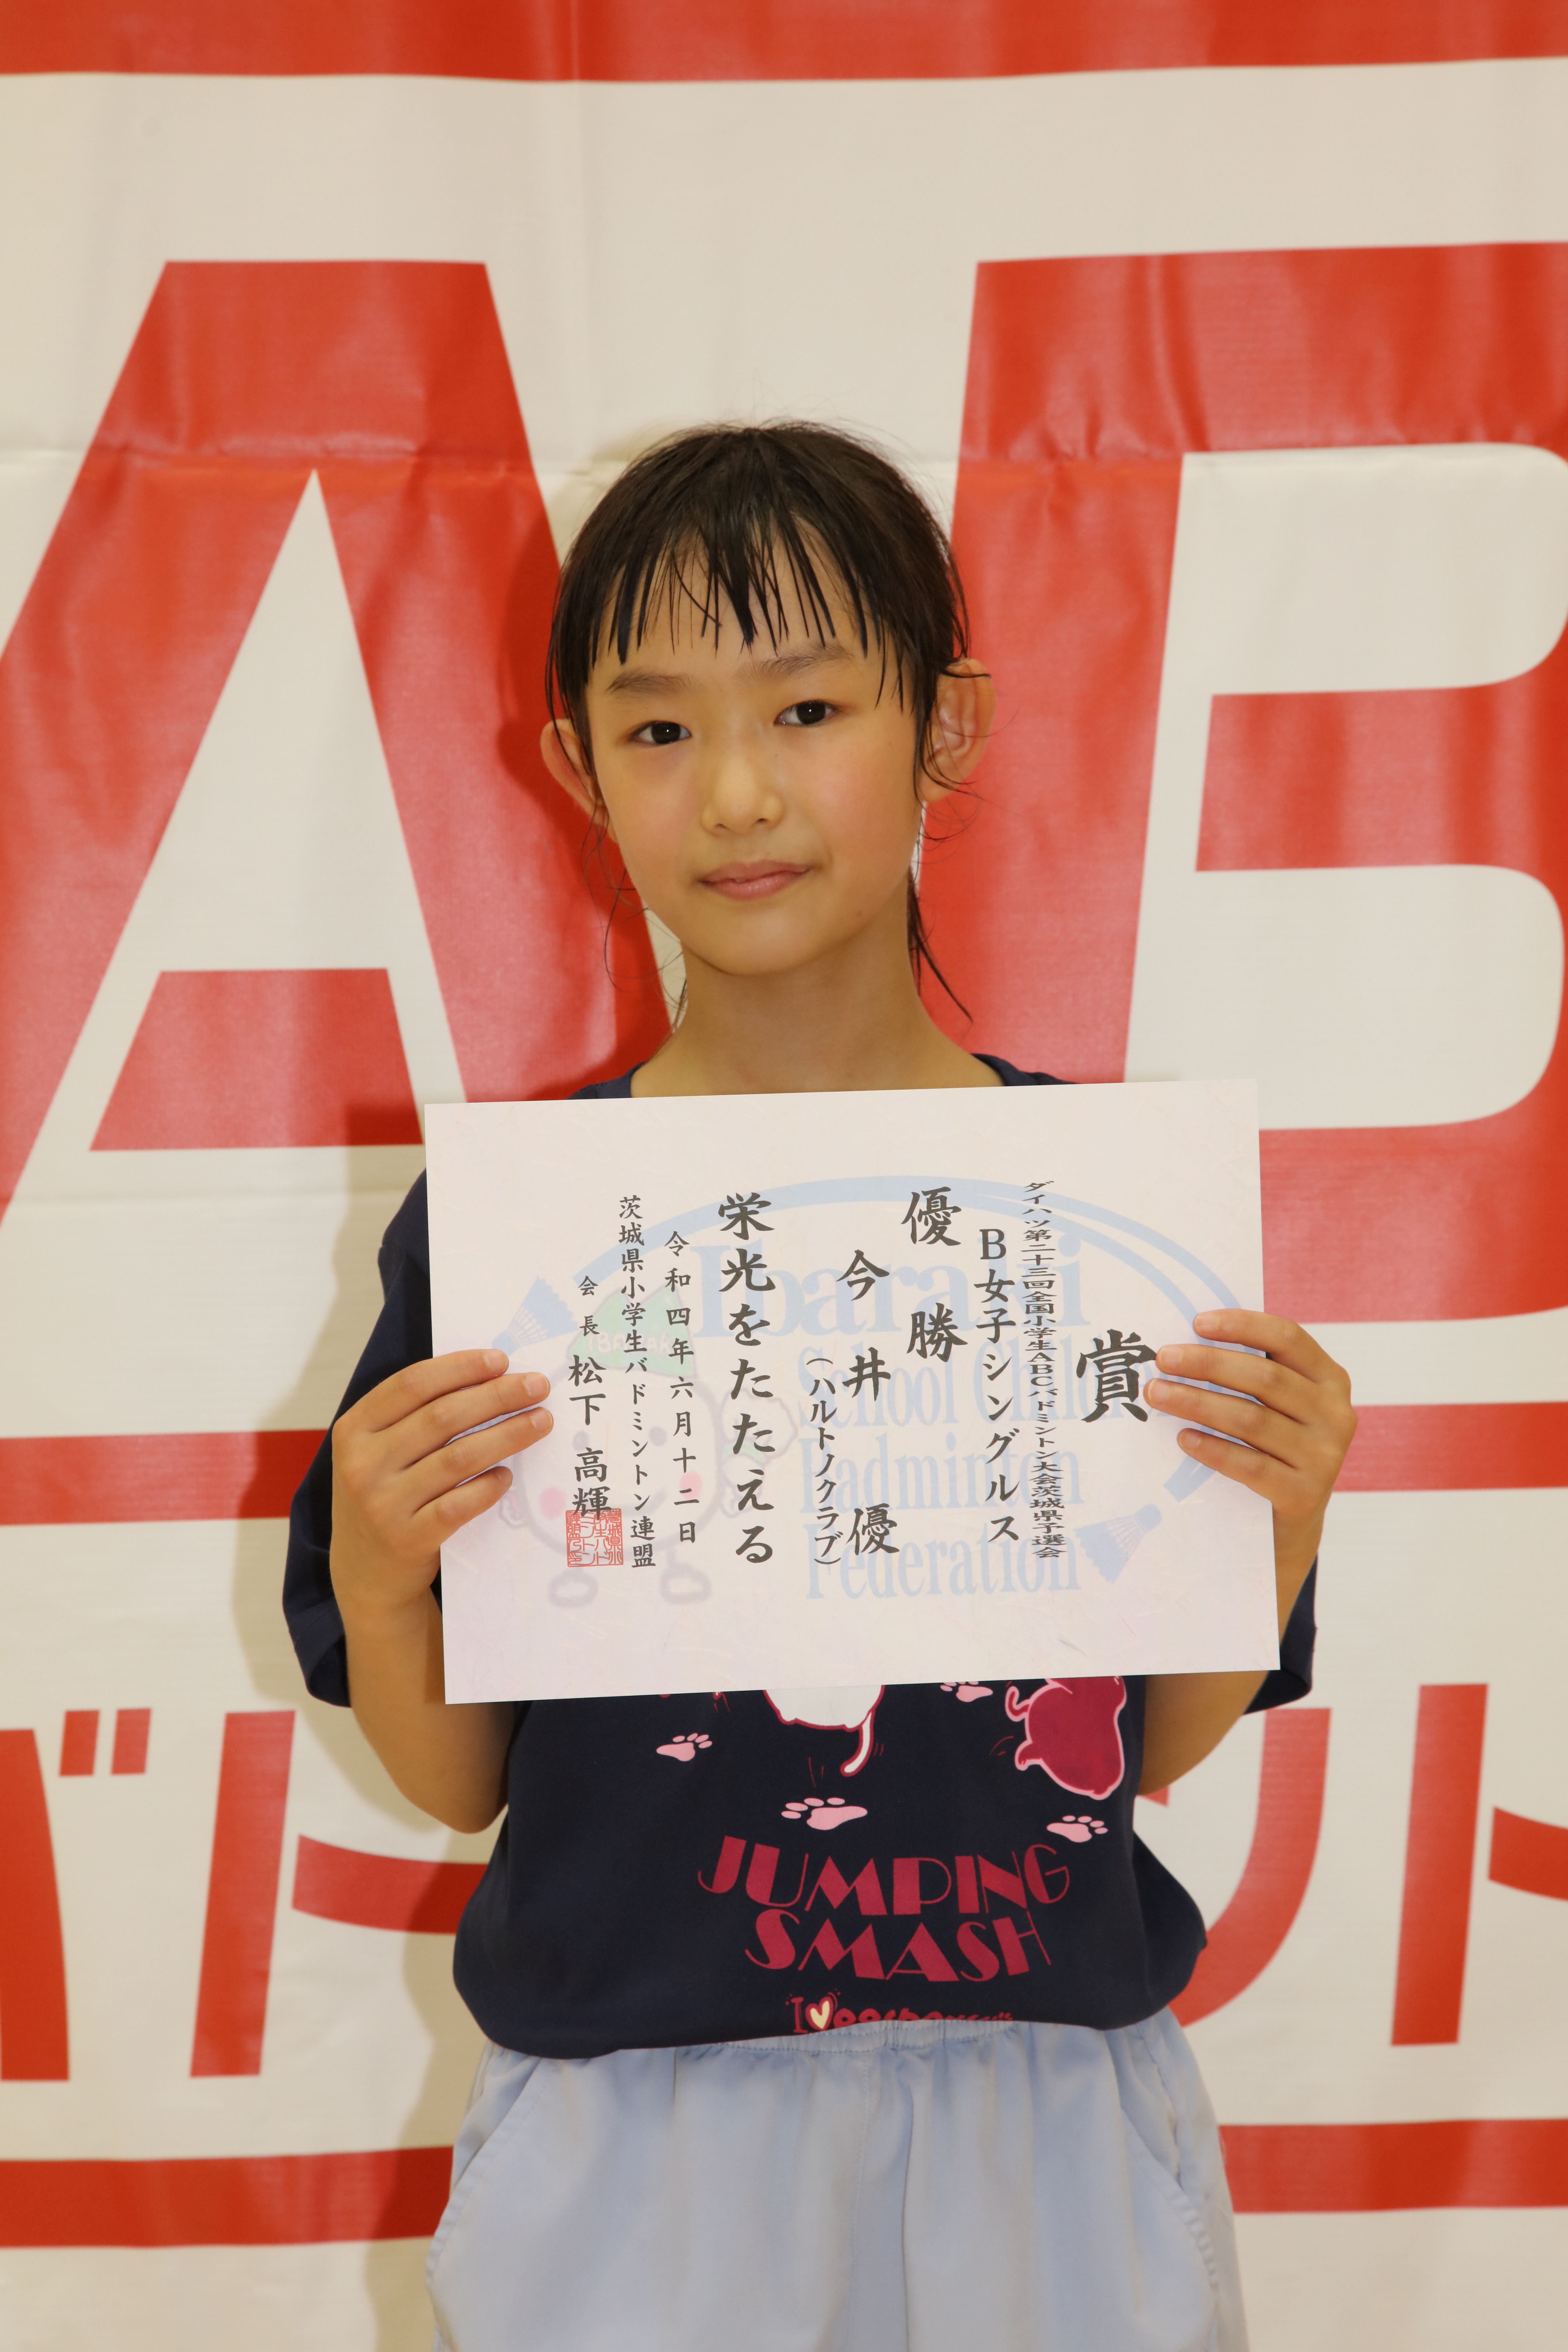 AB
賞
ダイハツ第二十三回全国小学生ABCバドミントン大会茨城県予選会
B女子シングルス
優勝
今井 優
(ハルトノクラブ)
栄光をたたえる
令和四年六月十二日
茨城県小学生バドミントン連盟
会長 松下 高輝
Ibaraki
School Child
Badminton
Federation
JUMPING
SMASH
I